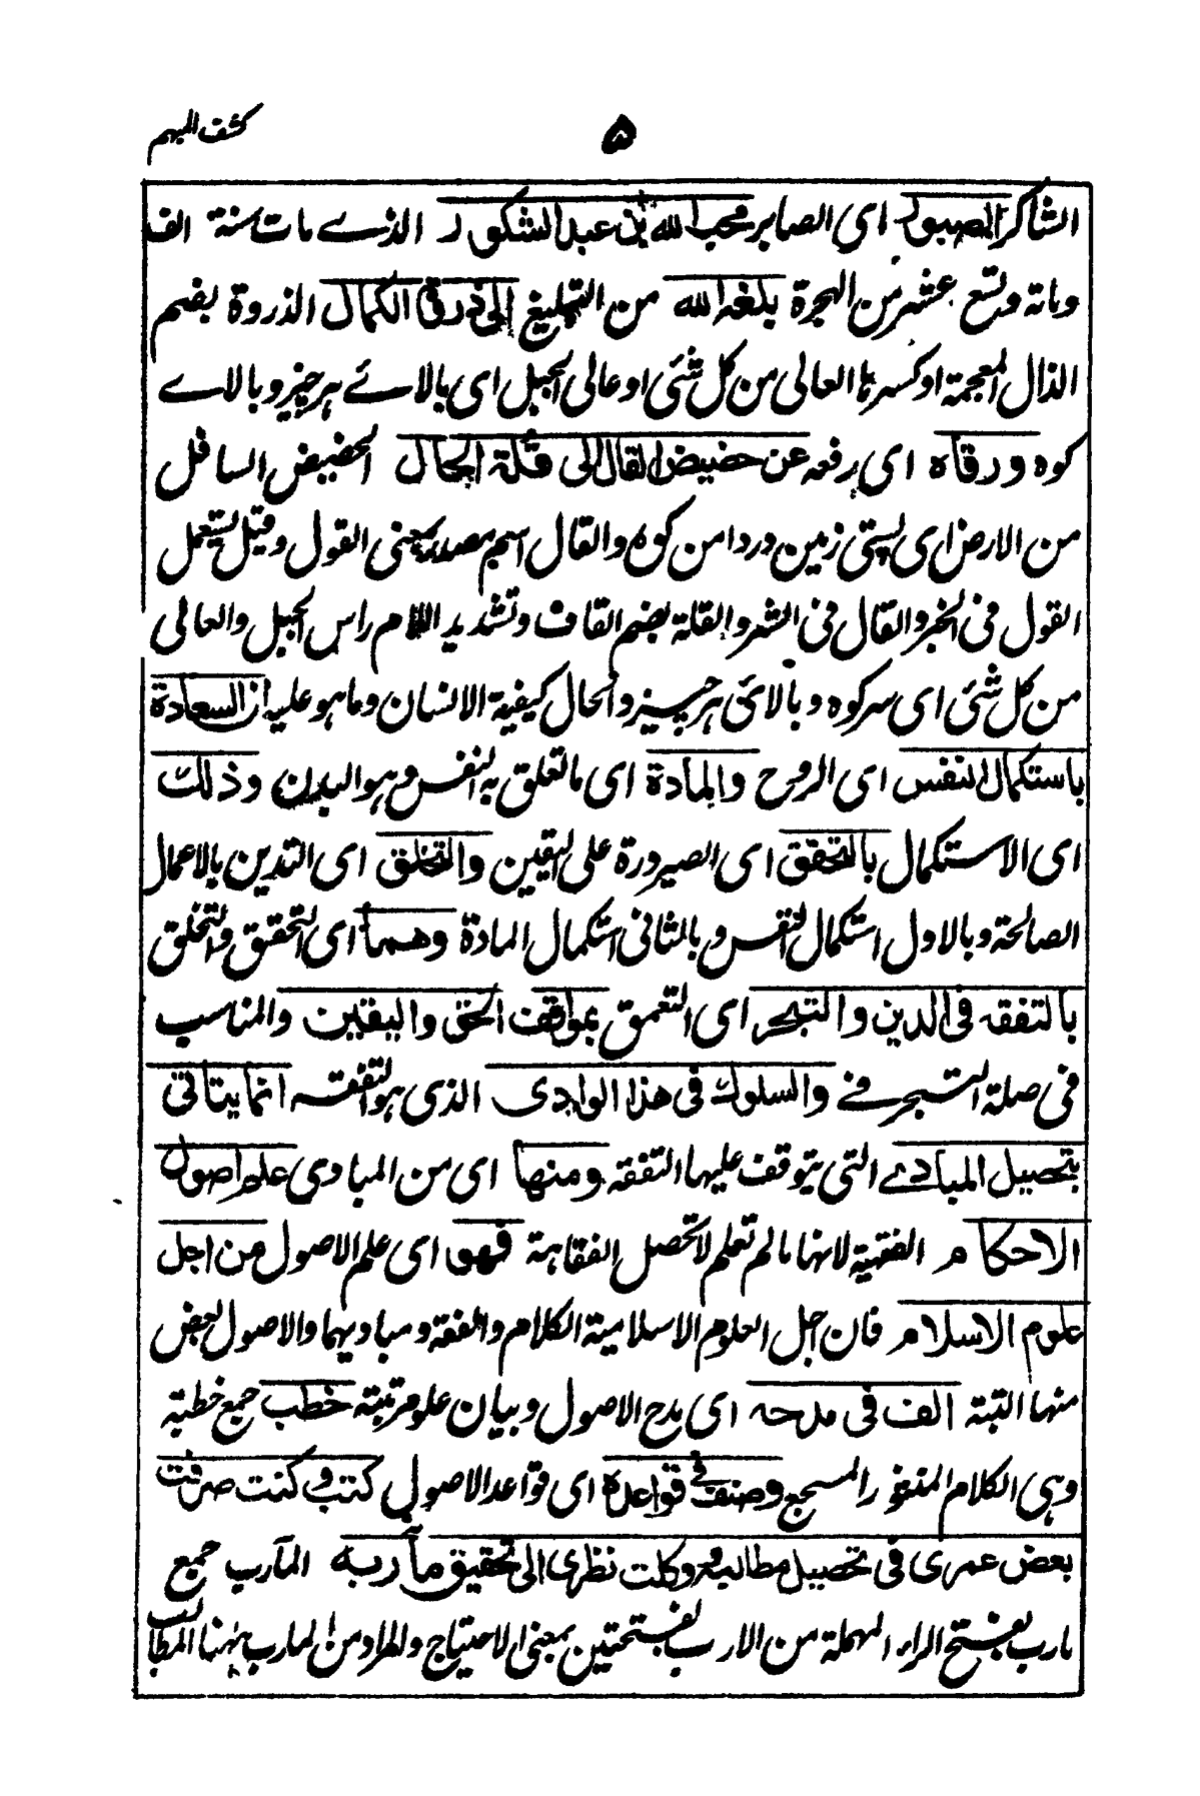 ۵
كشف المبهم
الشاكر الصبور اى الصابر محب الله بن عبد الشكور الذے مات سنة الف
ومائة وتسع عشر من الهجرة بلغه الله من التبليغ الى ذروة الكمال الذروة بضم
الذال المعجمة او كسرها العالى من كل شئى او عالى الجبل اى بالائے هر چیز وبالاے
كوه ورقاه اى رفعه عن حضيض القال الى قلة الحال الحضيض السافل
من الارض اى پستى زمين ودر دامن كوه والقال اسم مصدر بمعنى القول وقيل يستعمل
القول فى الخير والقال فى الشر والقلة بضم القاف وتشديد اللام راس الجبل والعالى
من كل شئى اى سر كوه وبالائى هر چیز والحال كيفية الانسان وما هو عليه ان السعادة
باستكمال النفس اى الروح والمادة اى ما تعلق به النفس وهو البدن وذلك
اى الاستكمال بالتحقق اى الصيرورة على اليقين والتخلق اى التدين بالاعمال
الصالحة وبالاول استكمال النفس وبالثانى استكمال المادة وهما اى التحقيق والتخلق
بالتفقه فى الدين والتبحر اى التعمق بمواقف الحق واليقين والمناسب
فى صلة التبحر فے والسلوك فى هذا الوادى الذى هو التفقه انما يتاتى
بتحصيل المبادے التى يتوقف عليها التفقه ومنها اى من المبادى علم اصول
الاحكام الفقهية لانها مالم تعلم لا تحصل الفقاهة فهو اى علم الاصول من اجل
علوم الاسلام فان اجل العلوم الاسلامية الكلام والفقه ومباديهما والاصول بعض
منها البتة الف فى مدحه اى مدح الاصول وبيان علو مرتبته خطب جمع خطبة
وهى الكلام المنثور المسجع وصنف فے قواعده اى قواعد الاصول كتب وكنت صرفت
بعض عمرى فى تحصيل مطالبه ووكلت نظرى الى تحقيق مآربه المآرب جمع
مارب بفتح الراء المهملة من الارب بفتحتين بمعنى الاحتياج والمراد من المارب ههنا المطالب